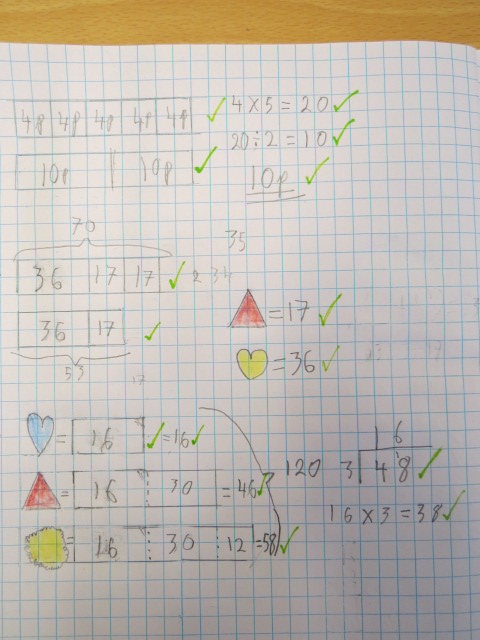 4p 4p 4p 4p 4p 4 × 5 = 20
20 ÷ 2 = 10
10p 10p 10p
70
35
36 17 17
= 17
36 17
53
= 36
= 16 = 16
16
= 16 30 = 46 120 3 4 8
16 × 3 = 38
= 16 30 12 = 58